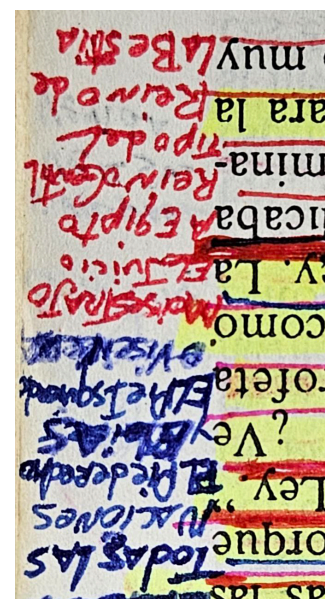 as las
orque
Ley,"
¿Ve
ofeta
como
y. La
icaba
mina-
ara la
muy
Todas Las
Naciones
El Pie derecho
y Elias
El Pie
Moises TRAJO
El Juicio
A Egipto
Reino Gentil
Tipo del
Reino de
LA Bestia